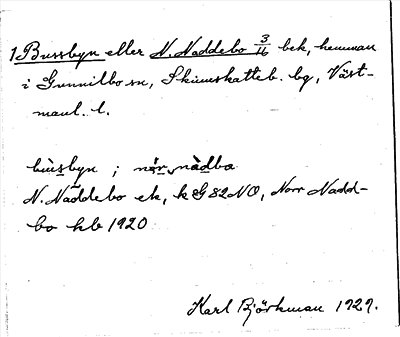 1 Bussbyn eller N. Naddebo 3/16 bek, hemman
i Gunnilbo sn, Skinnskatteb. bg, Väst-
manl. l.
bùsbyn ; nór nàdba
N. Naddebo ek, kG 82 NO, Norr Nadd-
bo hb 1920
Karl Björkman 1929.